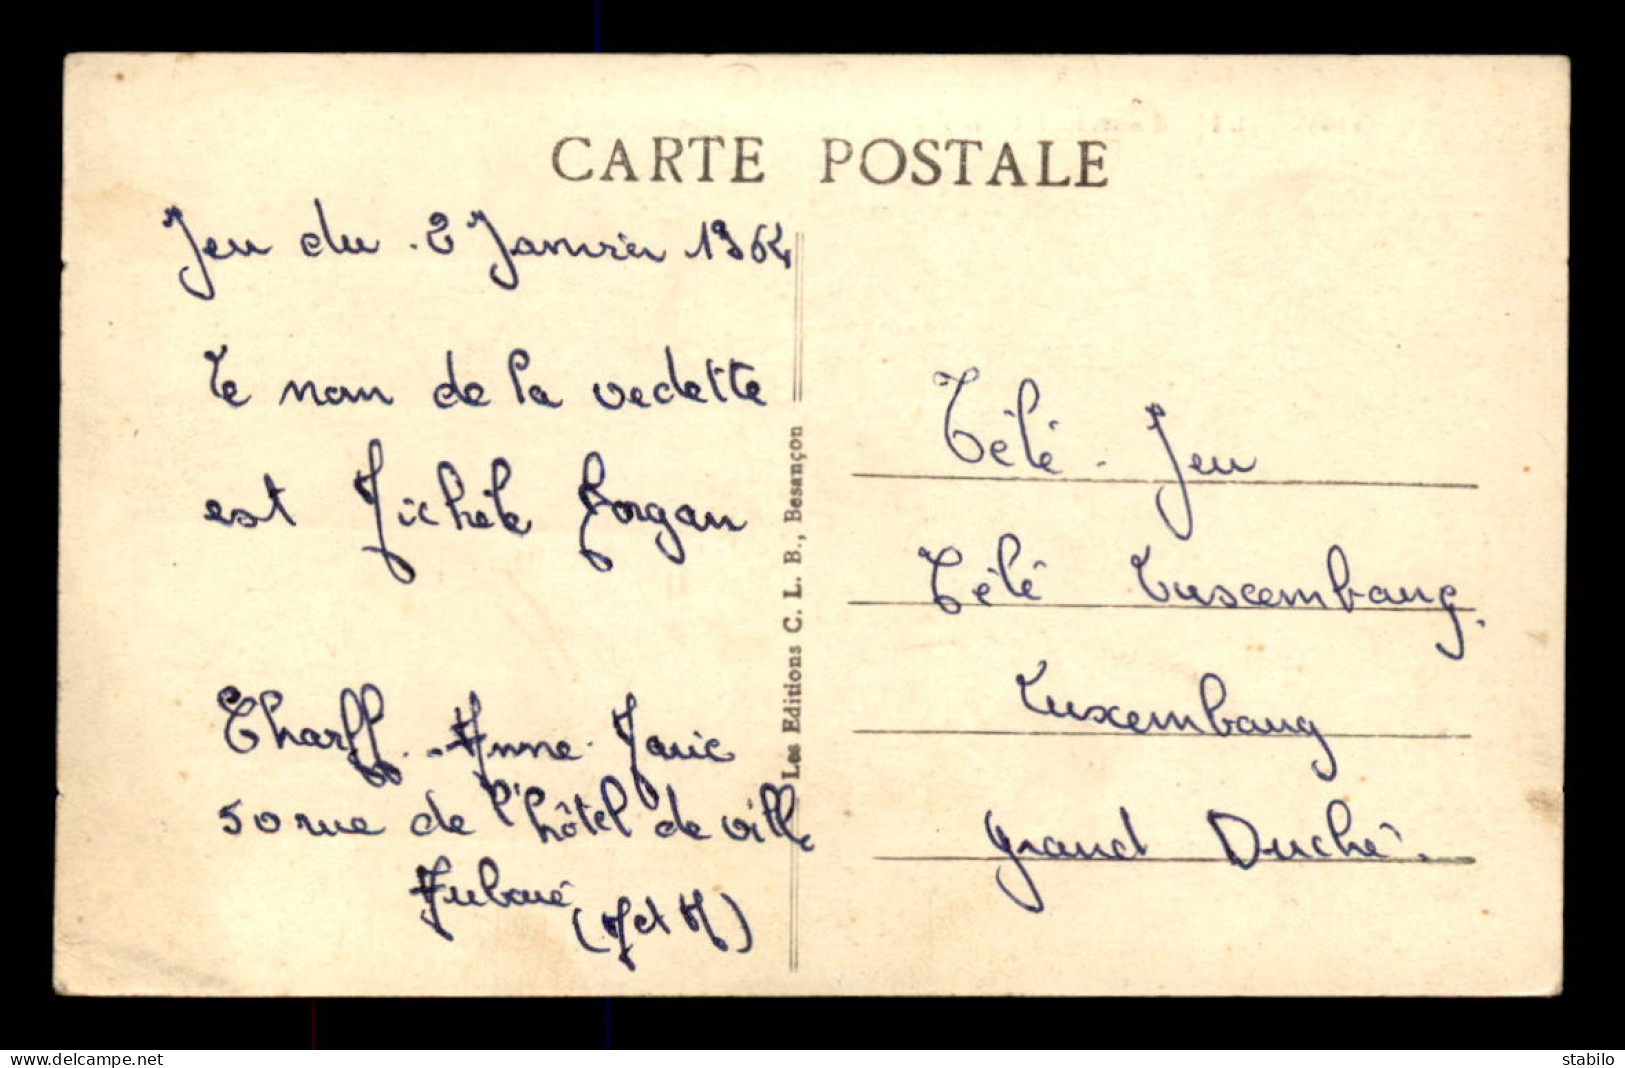 CARTE POSTALE
Jeu du 2 Janvier 1964
Le nom de la vedette
est Michèle Morgan
Tharff. - Anne-Marie
50 rue de l'hôtel de ville
Auboué
(M et M)
Les Editions C. L. B., Besançon
Télé-Jeu
Télé Luxembourg.
Luxembourg
Grand Duché.
www.delcampe.net
stabilo